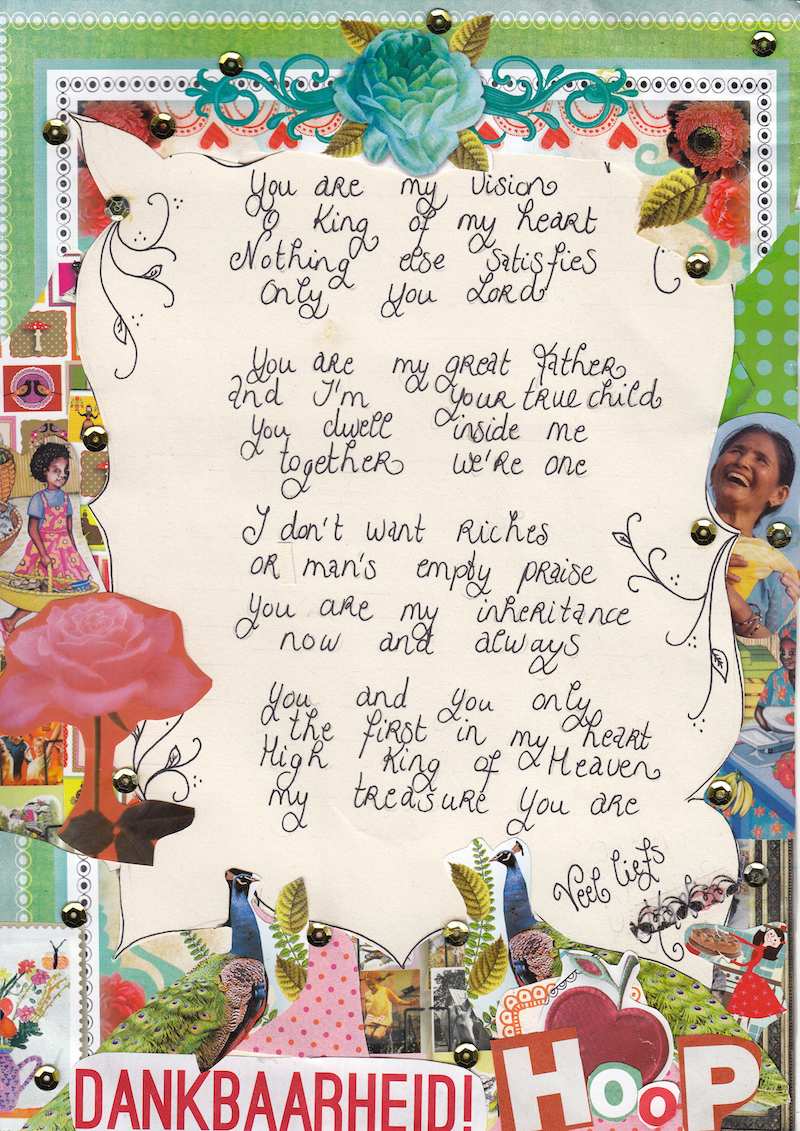 You are my vision
O King of my heart
Nothing else satisfies
Only you Lord
You are my great Father
and I'm your true child
You dwell inside me
together we're one
I don't want riches
or man's empty praise
You are my inheritance
now and always
You and you only
the first in my heart
High King of Heaven
my treasure you are
Veel liefs
DANKBAARHEID!
HOOP